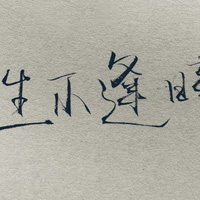 生不逢时